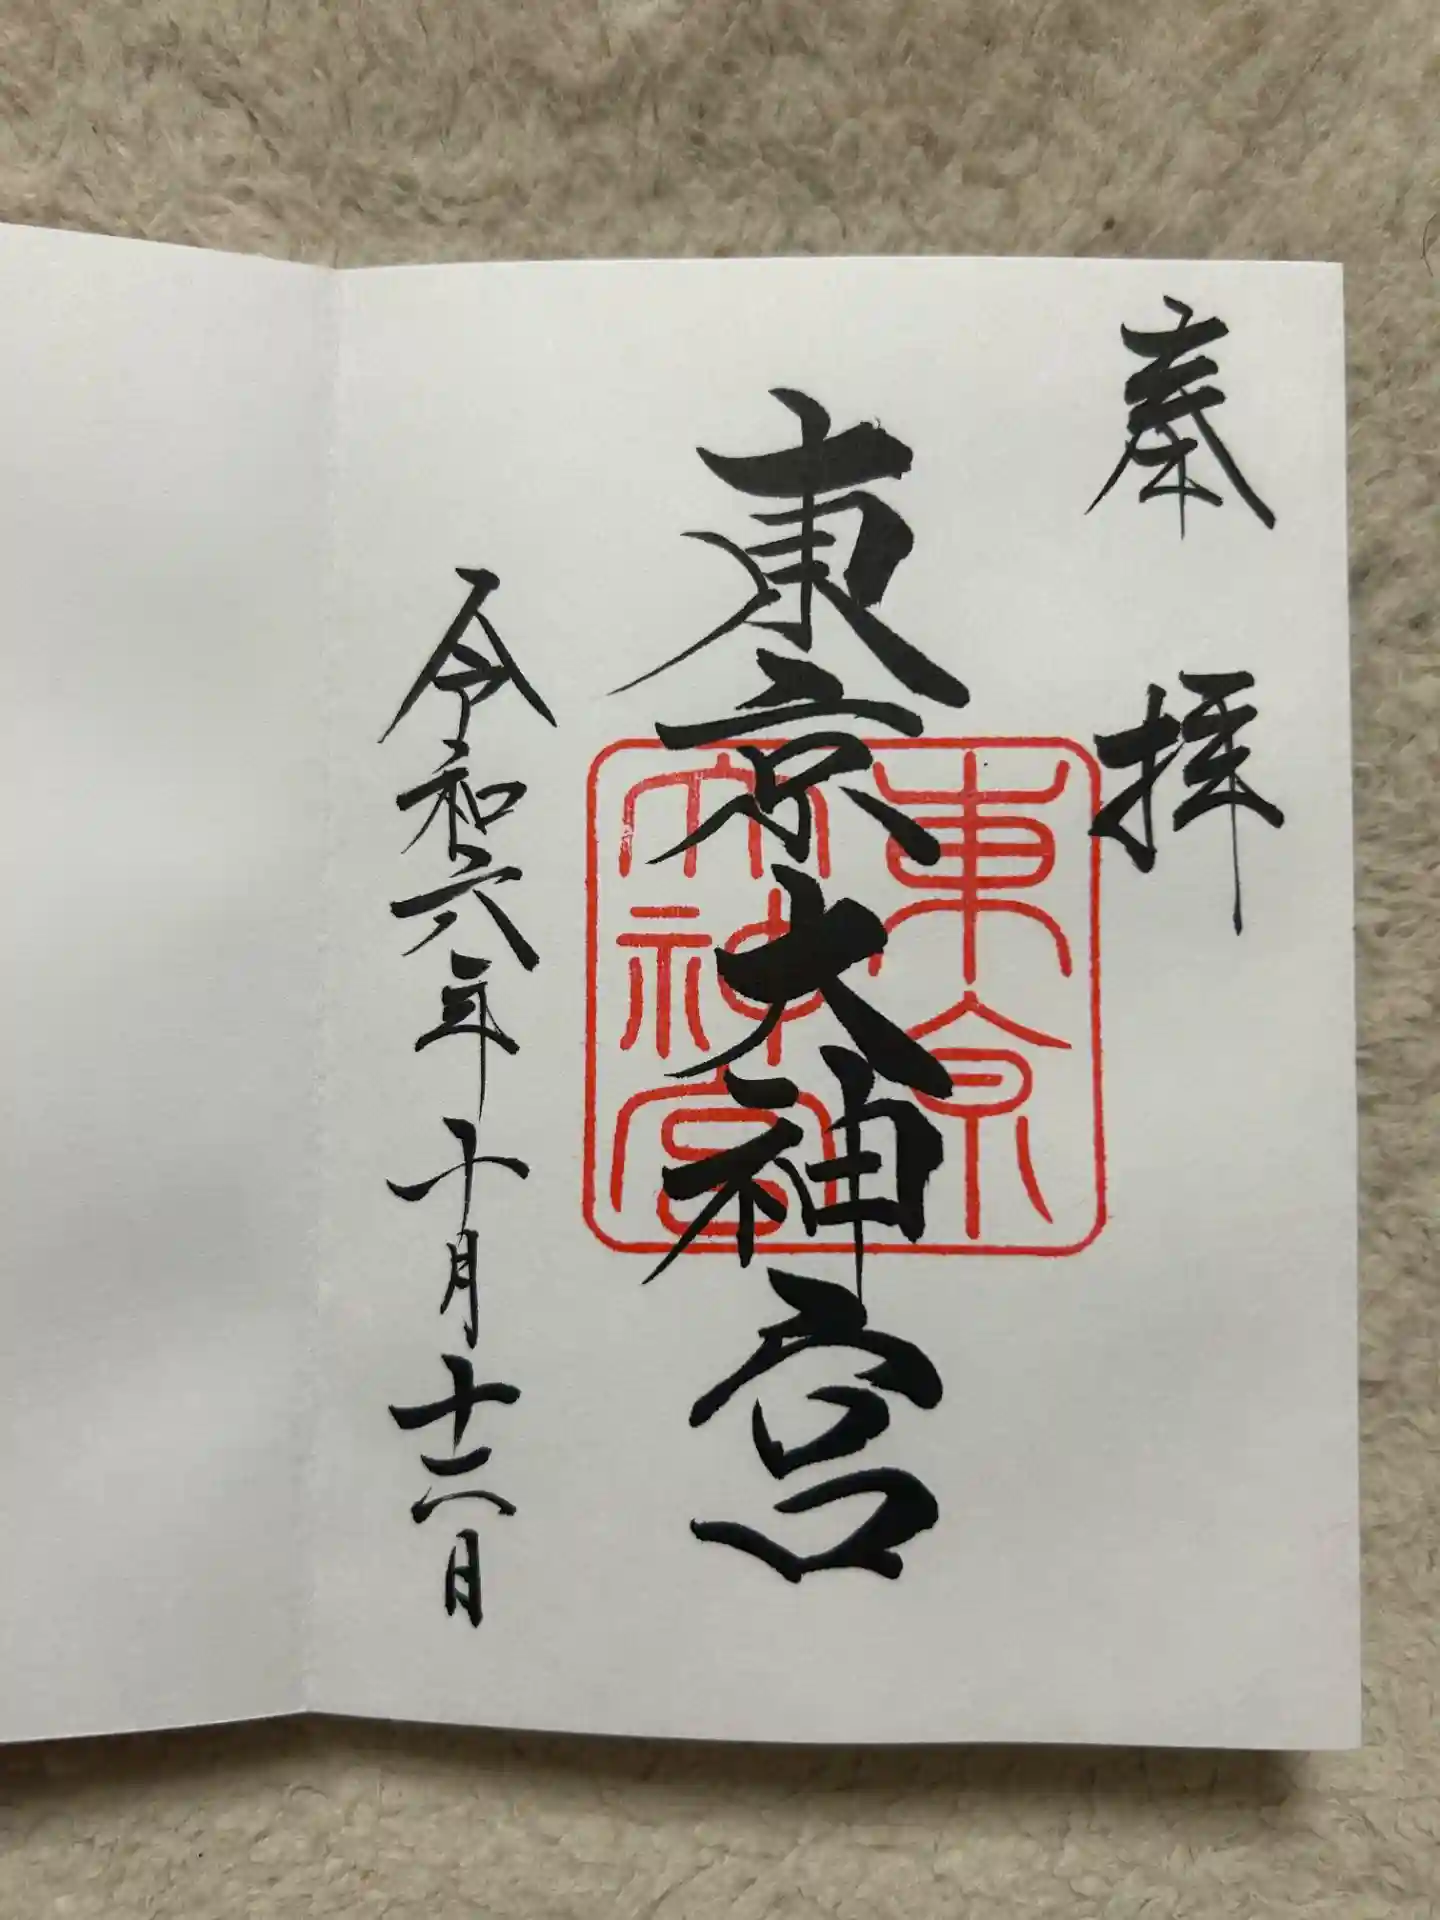 奉拝
東京大神宮
令和六年十月十六日
東京
大神宮